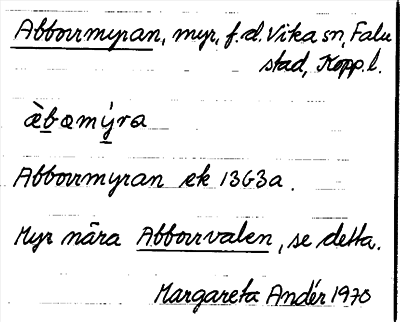 Abborrmyran, myr, f.d. Vika sn, Falu
stad, Kopp.l.
æ̀bɑmýra
Abborrmyran ek 13G3a.
Myr nära Abborrvalen, se detta.
Margareta Andér 1970